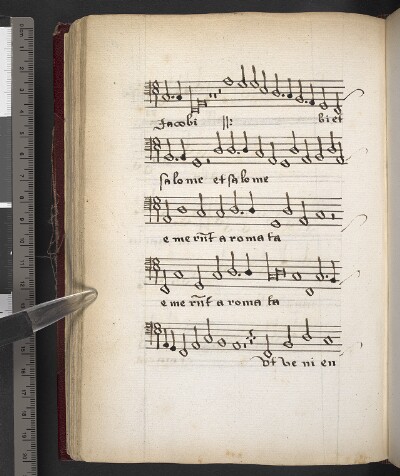 Jacobi ij: bi et
salome et salome
emerūt aromata
emerūt aromata
vt ve ni en